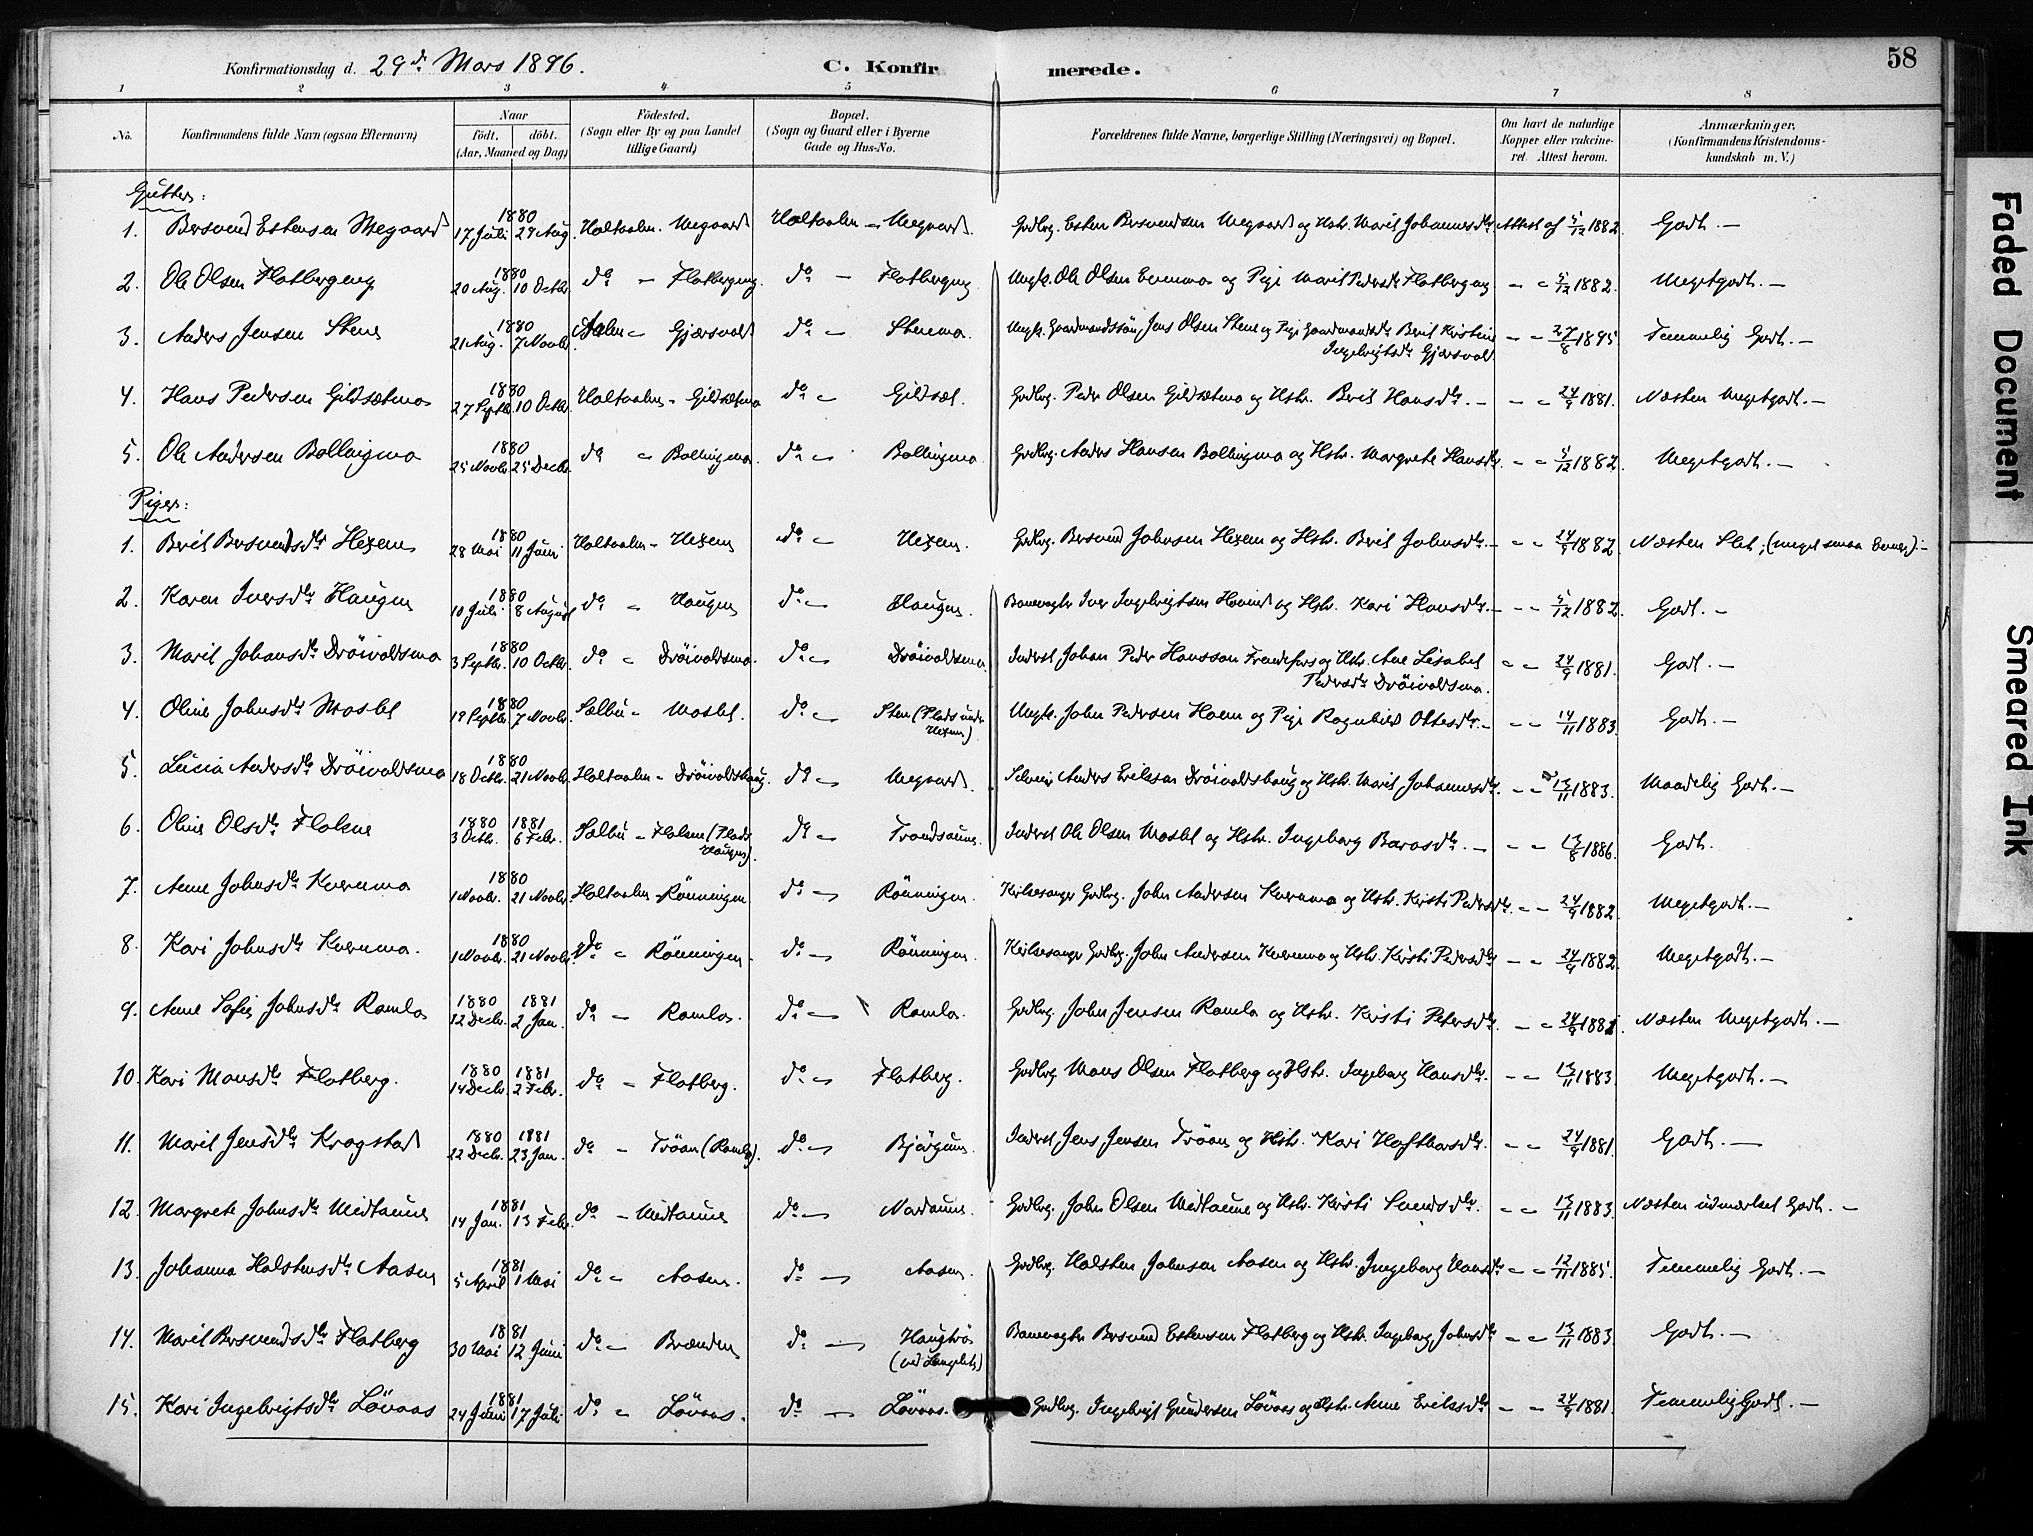 Konfirmationsdag d. 29d. Mars 1896. C. Konfirmerede. 58
1 2 3 4 5 6 7 8
No. Konfirmandens fulde Navn (ogsaa Efternavn) Naar födt. döbt. (Aar, Maaned og Dag) Födested. (Sogn eller By og paa Landet tillige Gaard) Bopæl. (Sogn og Gaard eller i Byerne Gade og Hus-No. Forældrenes fulde Navne, borgerlige Stilling (Næringsvei) og Bopæl. Om havt de naturlige Kopper eller vakcineret. Attest herom. Anmærkninger. (Konfirmandens Kristendomskundskab m. V.)
Gutter:
1. Bersvend Estensen Megaard 1880 17 Juli 29 Aug. Holtaalen - Megaard Holtaalen - Megaard. Gdbrg. Esten Bersvendsen Megaard og Hstr. Marit Johannesdtr. Attest af 5/12 1882. Godt. -
2. Ole Olsen Flatbergeng 1880 20 Aug. 10 Octbr. do - Flatbergeng. do - Flatbergeng Ungk. Ole Olsen Evenmo og Pige Marit Pedersdtr Flatbergeng - - 5/12 1882. Megetgodt. -
3. Anders Jensen Stene 1880 21 Aug. 7 Novbr. Aalen - Gjærsvold do - Stenmo. Ungk. Gaardmandssön Jens Olsen Stene og Pige Gaardmandsdtr. Berit Kristine Ingebrigtsdtr Gjærsvold. - - 27/8 1895. Temmelig Godt. -
4. Hans Pedersen Gildsætmo 1880 27 Septbr. 10 Octbr. Holtaalen - Gildsætmo do - Gildsæt. Gdbrg. Peder Olsen Gildsætmo og Hstr. Berit Hansdtr. - - - 24/9 1881. Næsten Megetgodt. -
5. Ole Andersen Bollingmo 1880 25 Novbr. 25 Decbr. do - Bollingmo. do - Bollingmo Gdbrg. Anders Hansen Bollingmo og Hstr. Margrete Hansdtr. - - 5/12 1882. Megetgodt. -
Piger:
1. Berit Bersvendsdtr Hexem 1880 28 Mai 11 Juni Holtaalen - Hexem do - Hexem. Gdbrg. Bersvend Johnsen Hexem og Hstr. Berit Johnsdtr. - - - 24/9 1882 Næsten Slet; (meget smaa Evner). -
2. Karen Iversdtr Haugen 1880 10 Juli 8 August do - Haugen do - Haugen. Banevogter Iver Ingebrigtsen Hovind og Hstr. Kari Hansdtr. - - - 5/12 1882. Godt. -
3. Marit Johansdtr Dröivoldsmo 1880 3 Septbr. 10 Octbr. do - Dröivoldsmo. do - Dröivoldsmo. Inderst Johan Peder Hansson og Hstr. Ane Lisabet Pedersdtr Dröivoldsmo. - - 24/9 1881. Godt. -
4. Oline Johnsdtr Moslet 1880 19 Septbr. 7 Novbr. Sælbu - Moslet. do - Sten (Plads under Hexem) Ungk. John Pedersen Hoem og Pige Ragnhild Ottesdtr. - - - 14/11 1883. Godt. -
5. Lucia Andersdtr Dröivoldsmo 1880 18 Octbr. 21 Novbr. Holtaalen - Dröivoldshaug. do - Megaard. Selveier Anders Eriksen Dröivoldshaug og Hstr. Marit Johannesdtr. - - 13/11 1883. Maadelig Godt. -
6. Oline Olsdtr Flaknæ 1880 3 Octbr. 1881 6 Febr. Sælbu - Flaknæ (Plads Haugen). do - Trondsaune. Inderst Ole Olsen Moslet og Hstr. Ingeborg Baarosdtr. - - - 13/8 1886. Godt.
7. Anne Johnsdtr Kvernmo 1880 1 Novbr. 21 Novbr. Holtaalen - Rönningen do - Rönningen. Kirkesanger Gdbrg. John Andersen Kvernmo og Hstr. Kirsti Pedersdtr - - 24/9 1882. Megetgodt. -
8. Kari Johnsdtr Kvernmo. 1880 1 Novbr. 21 Novbr. do - Rönningen. do - Rönningen. Kirkesanger Gdbrg. John Andersen Kvernmo og Hstr. Kirsti Pedersdtr - - 24/9 1882. Megetgodt. -
9. Anne Sofie Johnsdtr Ramlo 1880 12 Decbr. 1881 2 Jan. do - Ramlo. do - Ramlo. Gdbrg. John Jensen Ramlo og Hstr. Kirsti Petersdtr. - - 24/9 1881. Næsten Megetgodt. -
10. Kari Monsdtr Flatberg. 1880 14 Decbr. 1881 2 Febr. do - Flatberg. do - Flatberg. Gdbrg. Mons Olsen Flatberg og Hstr. Ingeborg Hansdtr. - - 13/11 1883. Megetgodt. -
11. Marit Jensdtr Krogstad 1880 22 Decbr. 1881 23 Jan. do - Tröan (Ramlo). do - Bjørgum. Inderst Jens Jensen Tröan og Hstr. Kari Hafthorsdtr. - - 24/9 1881. Godt. -
12. Margrete Johnsdtr Midtaune 1881 14 Jan. 13 Febr. do - Midtaune do - Nordaune. Gdbrg. John Olsen Midtaune og Hstr. Kirsti Svendsdtr. - - 13/11 1883. Næsten udmærket Godt. -
13. Johanna Halstensdtr Aasen 1881 5 April 1 Mai do - Aasen. do - Aasen. Gdbrg. Halsten Johnsen Aasen og Hstr. Ingeborg Hansdtr - - 12/11 1885. Temmelig Godt. -
14. Marit Bersvendsdtr Flatberg 1881 30 Mai 12 Juni do - Brænden do - Haugtrö (ved Langlete) Banevogter Bersvend Estensen Flatberg og Hstr. Ingeborg Johnsdtr - - 13/11 1883. Godt. -
15. Kari Ingebrigtsdtr Lövaas 1881 24 Juni 17 Juli do - Lövaas. do - Lövaas. Gdbrg. Ingebrigt Gundersen Lövaas og Hstr. Anne Eriksdtr - - 24/9 1881. Temmelig Godt. -
Faded Document
Smeared Ink